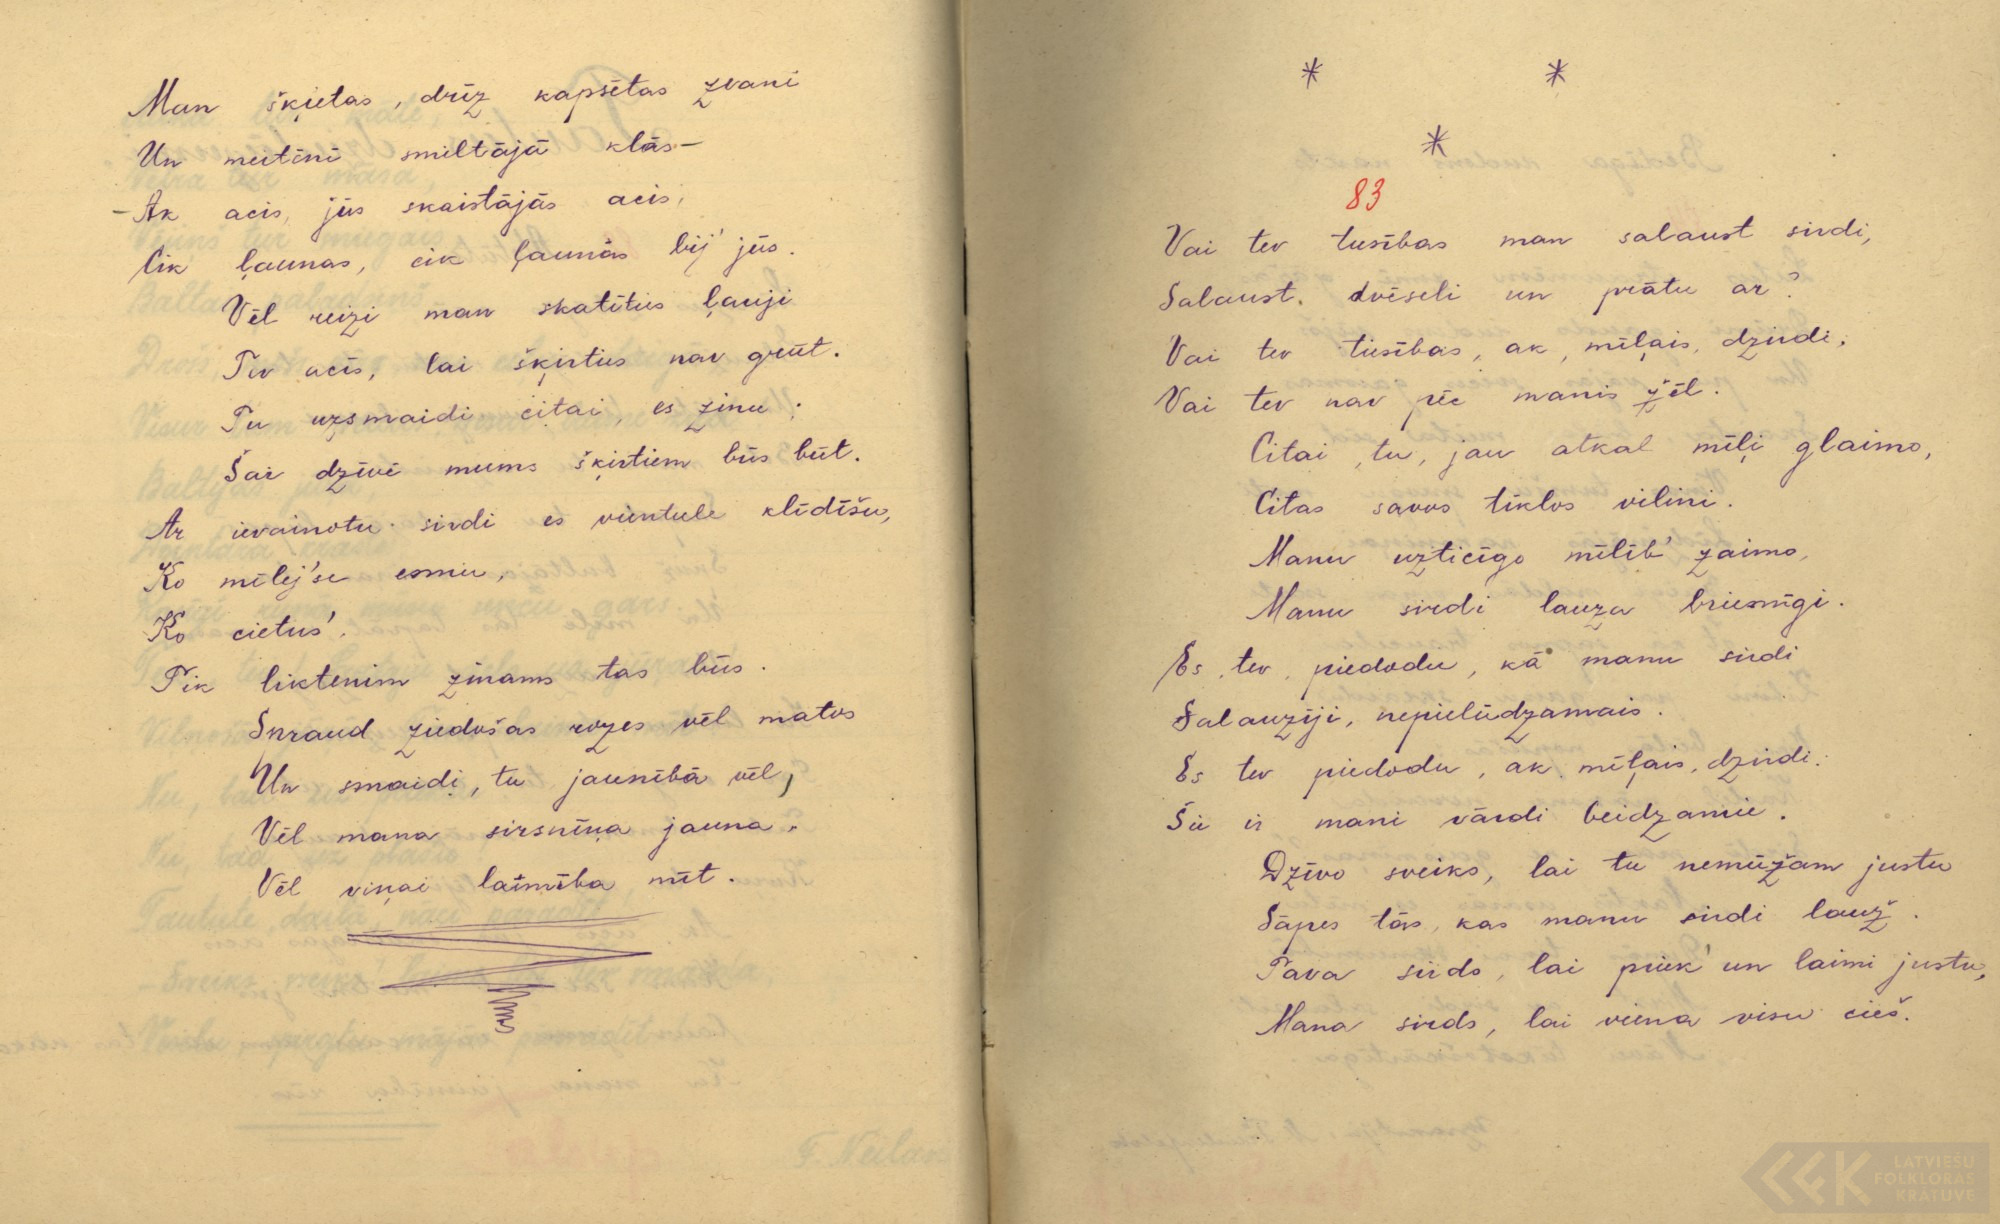 Man šķietas, drīz kapsētas zvani
Un meitēni smiltājā klās –
– Ak acis, jūs skaistājās acis,
Cik ļaunas, cik ļaunas bij' jūs.
Vēl reizi man skatīties ļauji
Tev acīs, lai šķirties nav grūt.
Tu uzsmaidi citai, es zinu;
Šai dzīvē mums šķirtiem būs būt.
Ar ievainotu sirdi es vientule klīdīšu,
Ko mīlej'se esmu,
Ko cietus'.
Tik liktenim zinams tas būs.
Spraud ziedošas rozes vēl matos
Un smaidi, tu jaunībā vēl,
Vēl mana sirsniņa jauna.
Vēl viņai laimība mīt.
* *
*
83
Vai tev tiesības man salaust sirdi,
Salaust dvēseli un prātu ar?
Vai tev tiesības, ak, mīļais, dzirdi,
Vai tev nav pēc manis žēl.
Citai, tu, jau atkal mīļi glaimo,
Citas savos tīklos vilini.
Manu uzticīgo mīlīb' zaimo,
Manu sirdi lauza briesmīgi.
Es tev piedodu, kā manu sirdi
Salauzīji, nepielūdzamais.
Es tev piedodu, ak mīļais, dzirdi:
Šie ir mani vārdi beidzamie.
Dzīvo sveiks, lai tu nemūžam justu
Sāpes tās, kas manu sirdi lauž.
Tava sirds, lai priek' un laimi justu,
Mana sirds, lai viena visu cieš.
LATVIEŠU
FOLKLORAS
KRATUVE